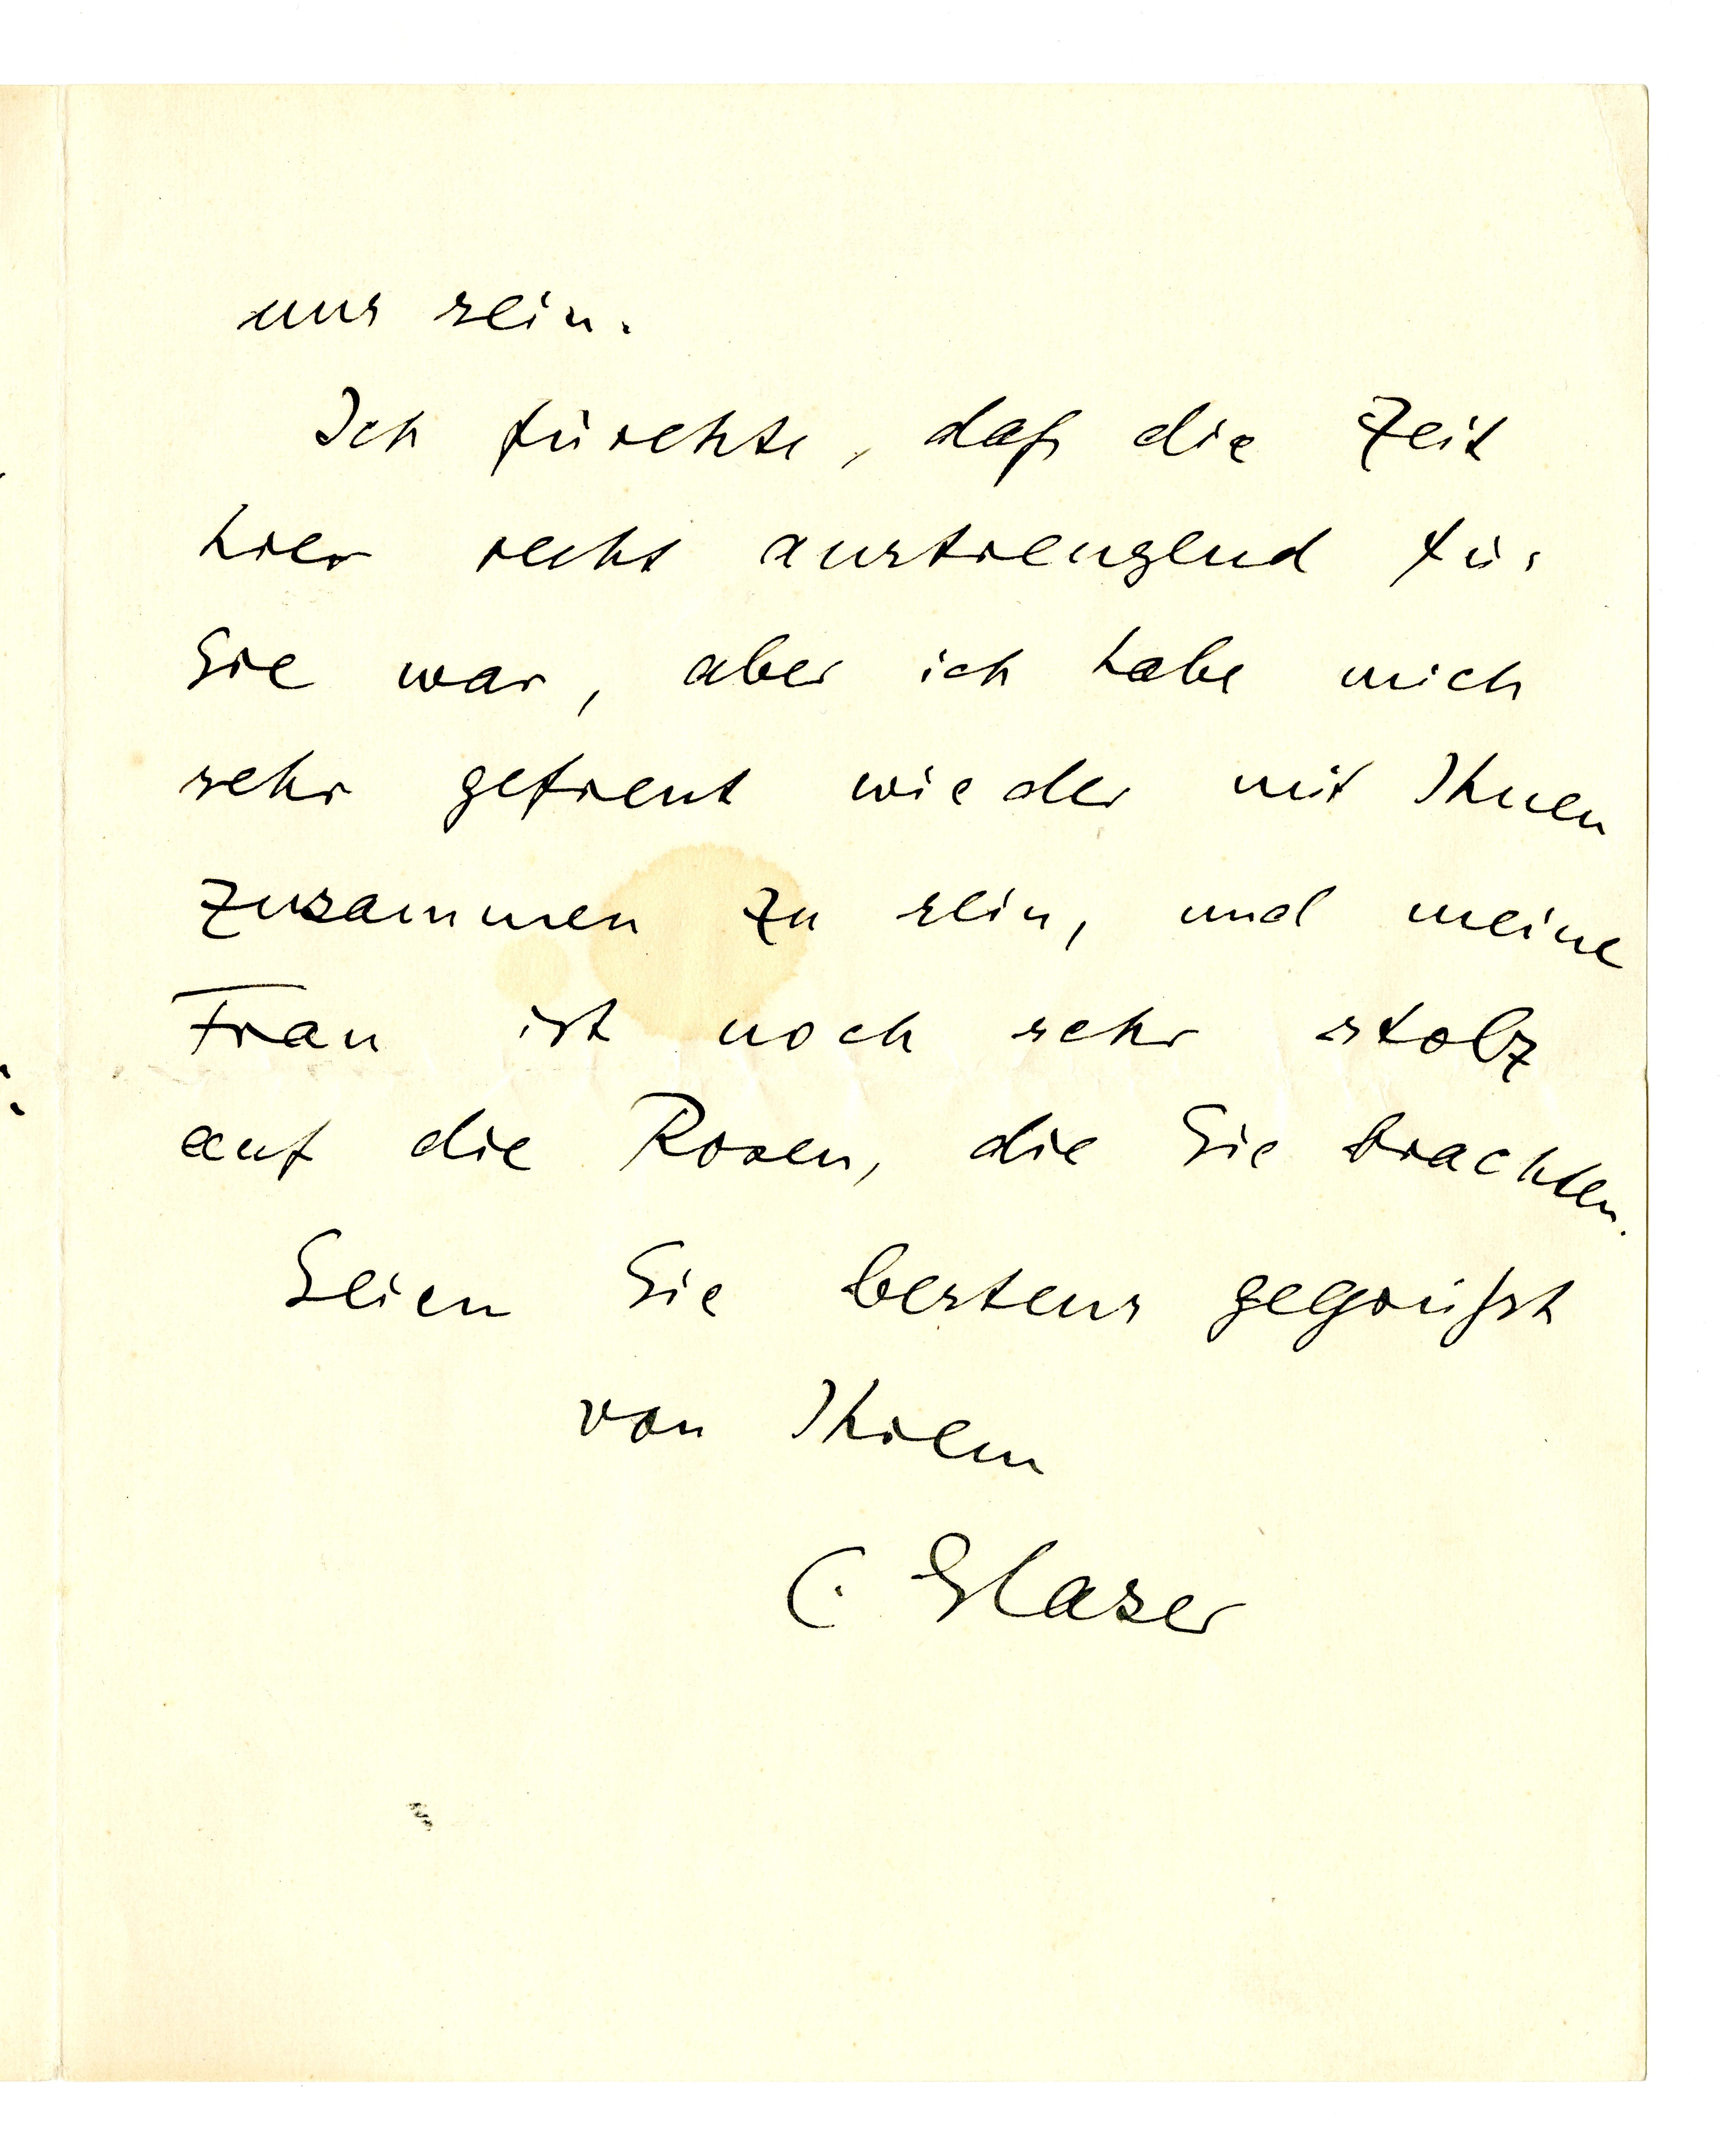 uns sein.
Ich fürchte, daß die Zeit
hier recht anstrengend für
Sie war, aber ich habe mich
sehr gefreut wieder mit Ihnen
zusammen zu sein, und meine
Frau ist noch sehr stolz
auf die Rosen, die Sie brachten.
Seien Sie bestens gegrüßt
von Ihrem
C. Glaser